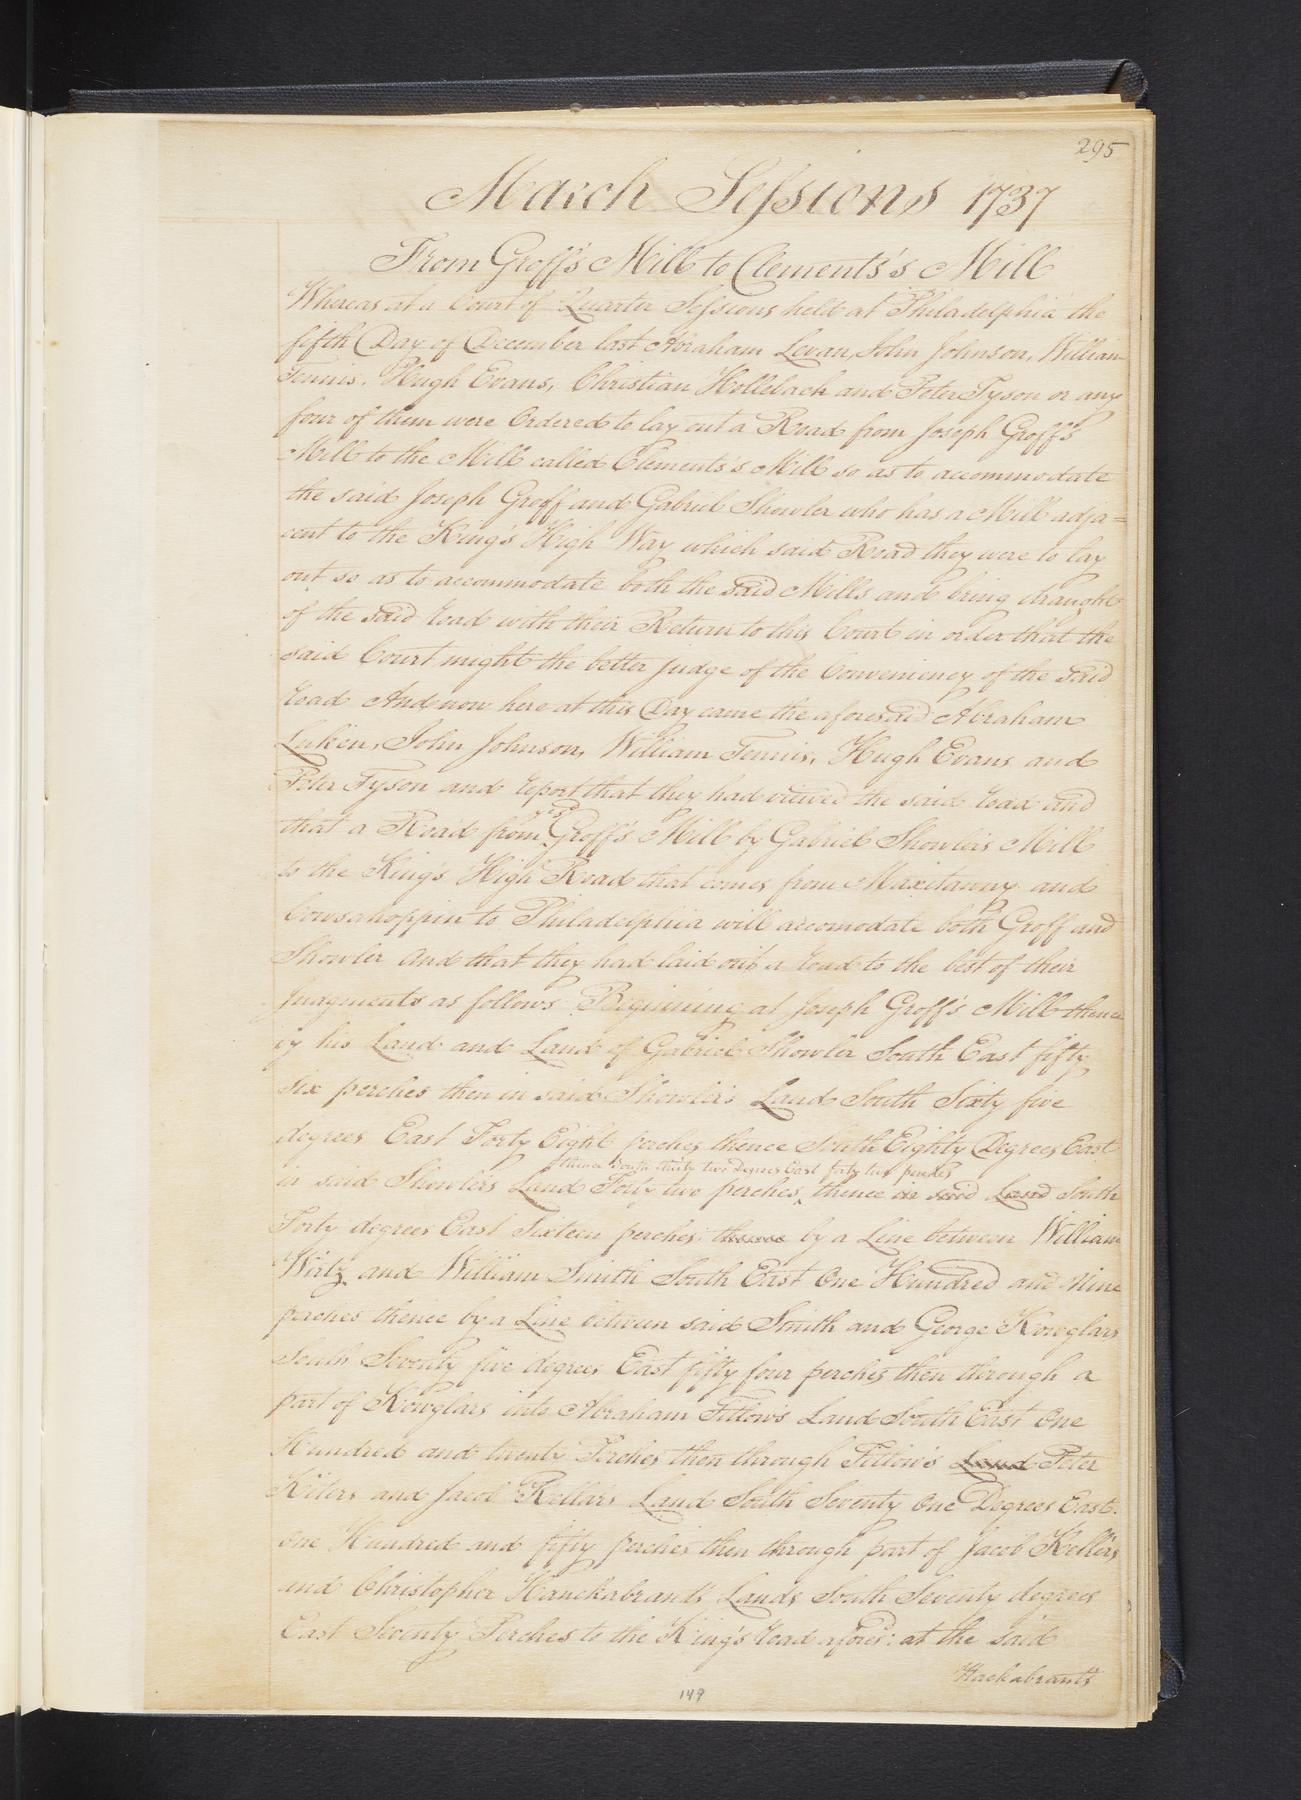 295
March Sessions 1737
From Groff's Mill to Clements's Mill
Whereas at a Court of Quarter Sessions held at Philadelphia the
fifth Day of December last Abraham Levan, John Johnson, William
Tennis, Hugh Evans, Christian Hollebach and Peter Tyson or any
four of them were Ordered to lay out a Road from Joseph Groff's
Mill to the Mill called Clements's Mill so as to accommodate
the said Joseph Groff and Gabriel Showler who has a Mill adja=
cent to the King's High Way which said Road they were to lay
out so as to accommodate both the said Mills and bring draught
of the said road with their Return to this Court in order that the
said Court might the better judge of the Conveniency of the said
road And now here at this Day came the aforesaid Abraham
Luken, John Johnson, William Tennis, Hugh Evans and
Peter Tyson and report that they had viewed the said road and
that a Road from ye sd Groff's Mill by Gabriel Showler's Mill
to the King's High Road that comes from Maxitawny and
Cowsahoppin to Philadelphia will accomodate both Groff and
Showler And that they had laid out a road to the best of their
Judgments as follows Beginning at Joseph Groff's Mill thence
by his Land and Land of Gabriel Showler South East fifty
six perches then in said Showler's Land South Sixty five
degrees East Forty Eight perches thence South Eighty Degrees East
in said Showler's Land Forty two perches, thence South thirty two Degrees East forty two perches thence in said Land South
Forty degrees East Sixteen perches thence by a Line between William
Wirtz and William Smith South East One Hundred and Nine
perches thence by a Line between said Smith and George Kowglars
South Seventy five degrees East fifty four perches then through a
part of Kowglars into Abraham Titlow's Land South East One
Hundred and twenty Perches then through Titlow's Land Peter
Kiters and Jacob Kellars Land South Seventy One Degrees East
one Hundred and fifty perches then through part of Jacob Kellers
and Christopher Hanckabrands Lands South Seventy degrees
East Seventy Perches to the King's road afores.d at the said
Hackabrants
149